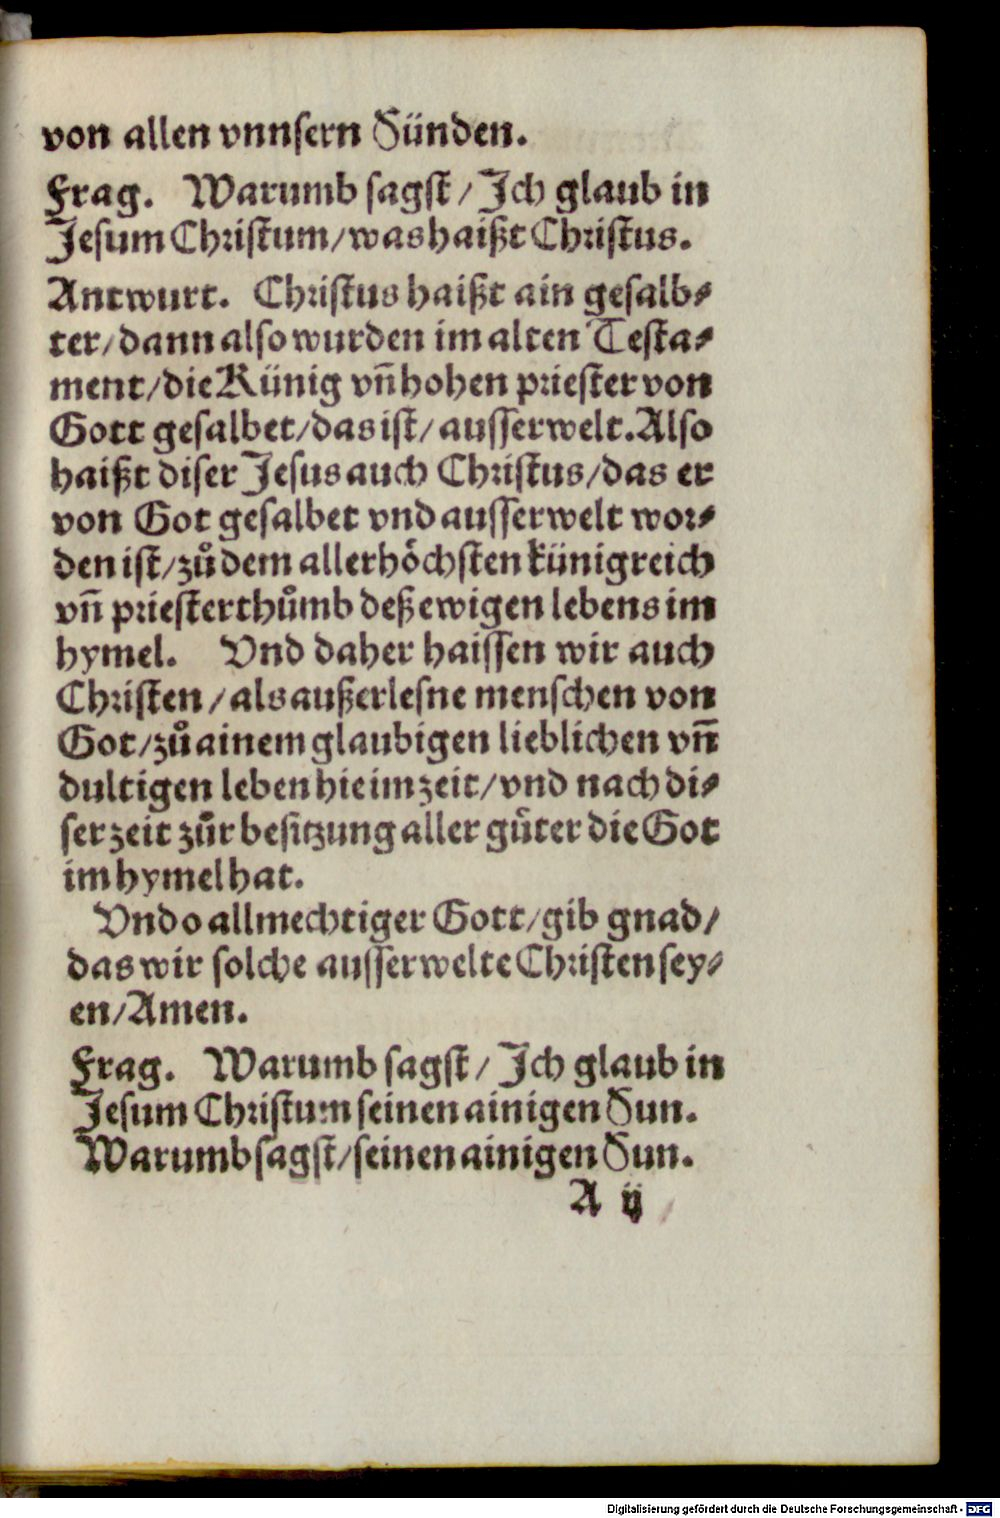 von allen vnnsern Sünden.
Frag. Warumb sagst / Ich glaub in
Jesum Christum/was haißt Christus.
Antwurt. Christus haißt ain gesalb⸗
ter/dann also wurden im alten Testa⸗
ment/die Künig vñ hohen priester von
Gott gesalbet/das ist/ausserwelt. Also
haißt diser Jesus auch Christus/das er
von Got gesalbet vnd ausserwelt wor⸗
den ist/zů dem allerhöchsten künigreich
vñ priesterthůmb deß ewigen lebens im
hymel. Vnd daher haissen wir auch
Christen/als außerlesne menschen von
Got/zů ainem glaubigen lieblichen vñ
dultigen leben hie im zeit/vnd nach di⸗
ser zeit zůr besitzung aller güter die Got
im hymel hat.
Vnd o allmechtiger Gott/gib gnad/
das wir solche ausserwelte Christen sey⸗
en/Amen.
Frag. Warumb sagst / Ich glaub in
Jesum Christum seinen ainigen Sun.
Warumb sagst/seinen ainigen Sun.
A ij
Digitalisierung gefördert durch die Deutsche Forschungsgemeinschaft - DFG